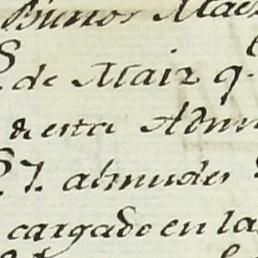 Buenos
de Maiz q.
de esta Admi
7. almudes
cargado en la